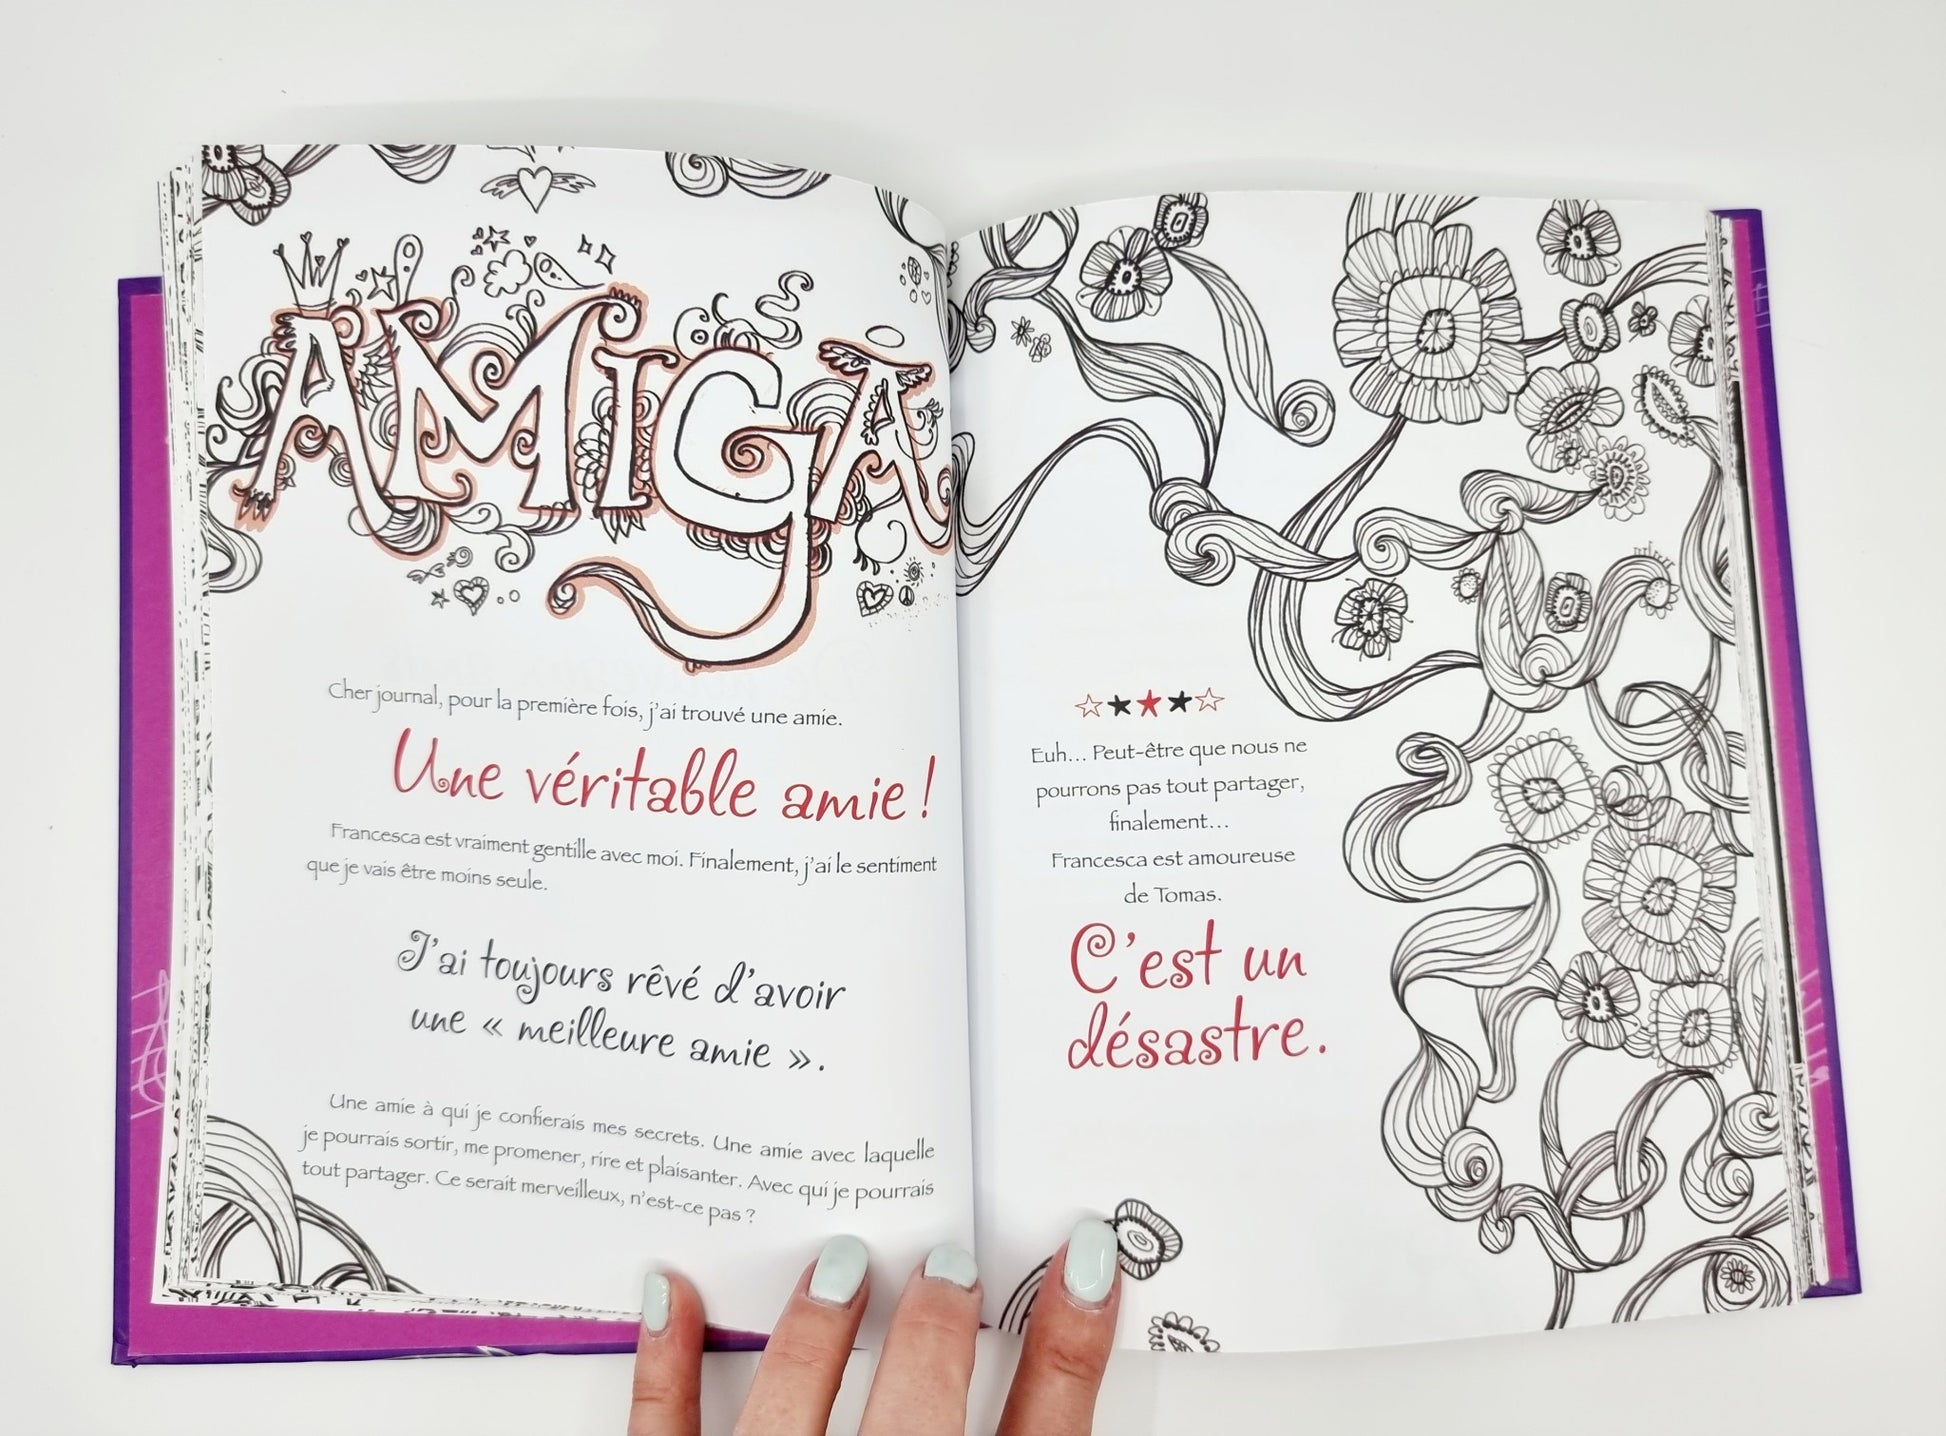 AMIGA
Cher journal, pour la première fois, j'ai trouvé une amie.
Une véritable amie !
Francesca est vraiment gentille avec moi. Finalement, j'ai le sentiment
que je vais être moins seule.
J'ai toujours rêvé d'avoir
une « meilleure amie ».
Une amie à qui je confierais mes secrets. Une amie avec laquelle
je pourrais sortir, me promener, rire et plaisanter. Avec qui je pourrais
tout partager. Ce serait merveilleux, n'est-ce pas ?
Euh... Peut-être que nous ne
pourrons pas tout partager,
finalement...
Francesca est amoureuse
de Tomas.
C'est un
désastre.